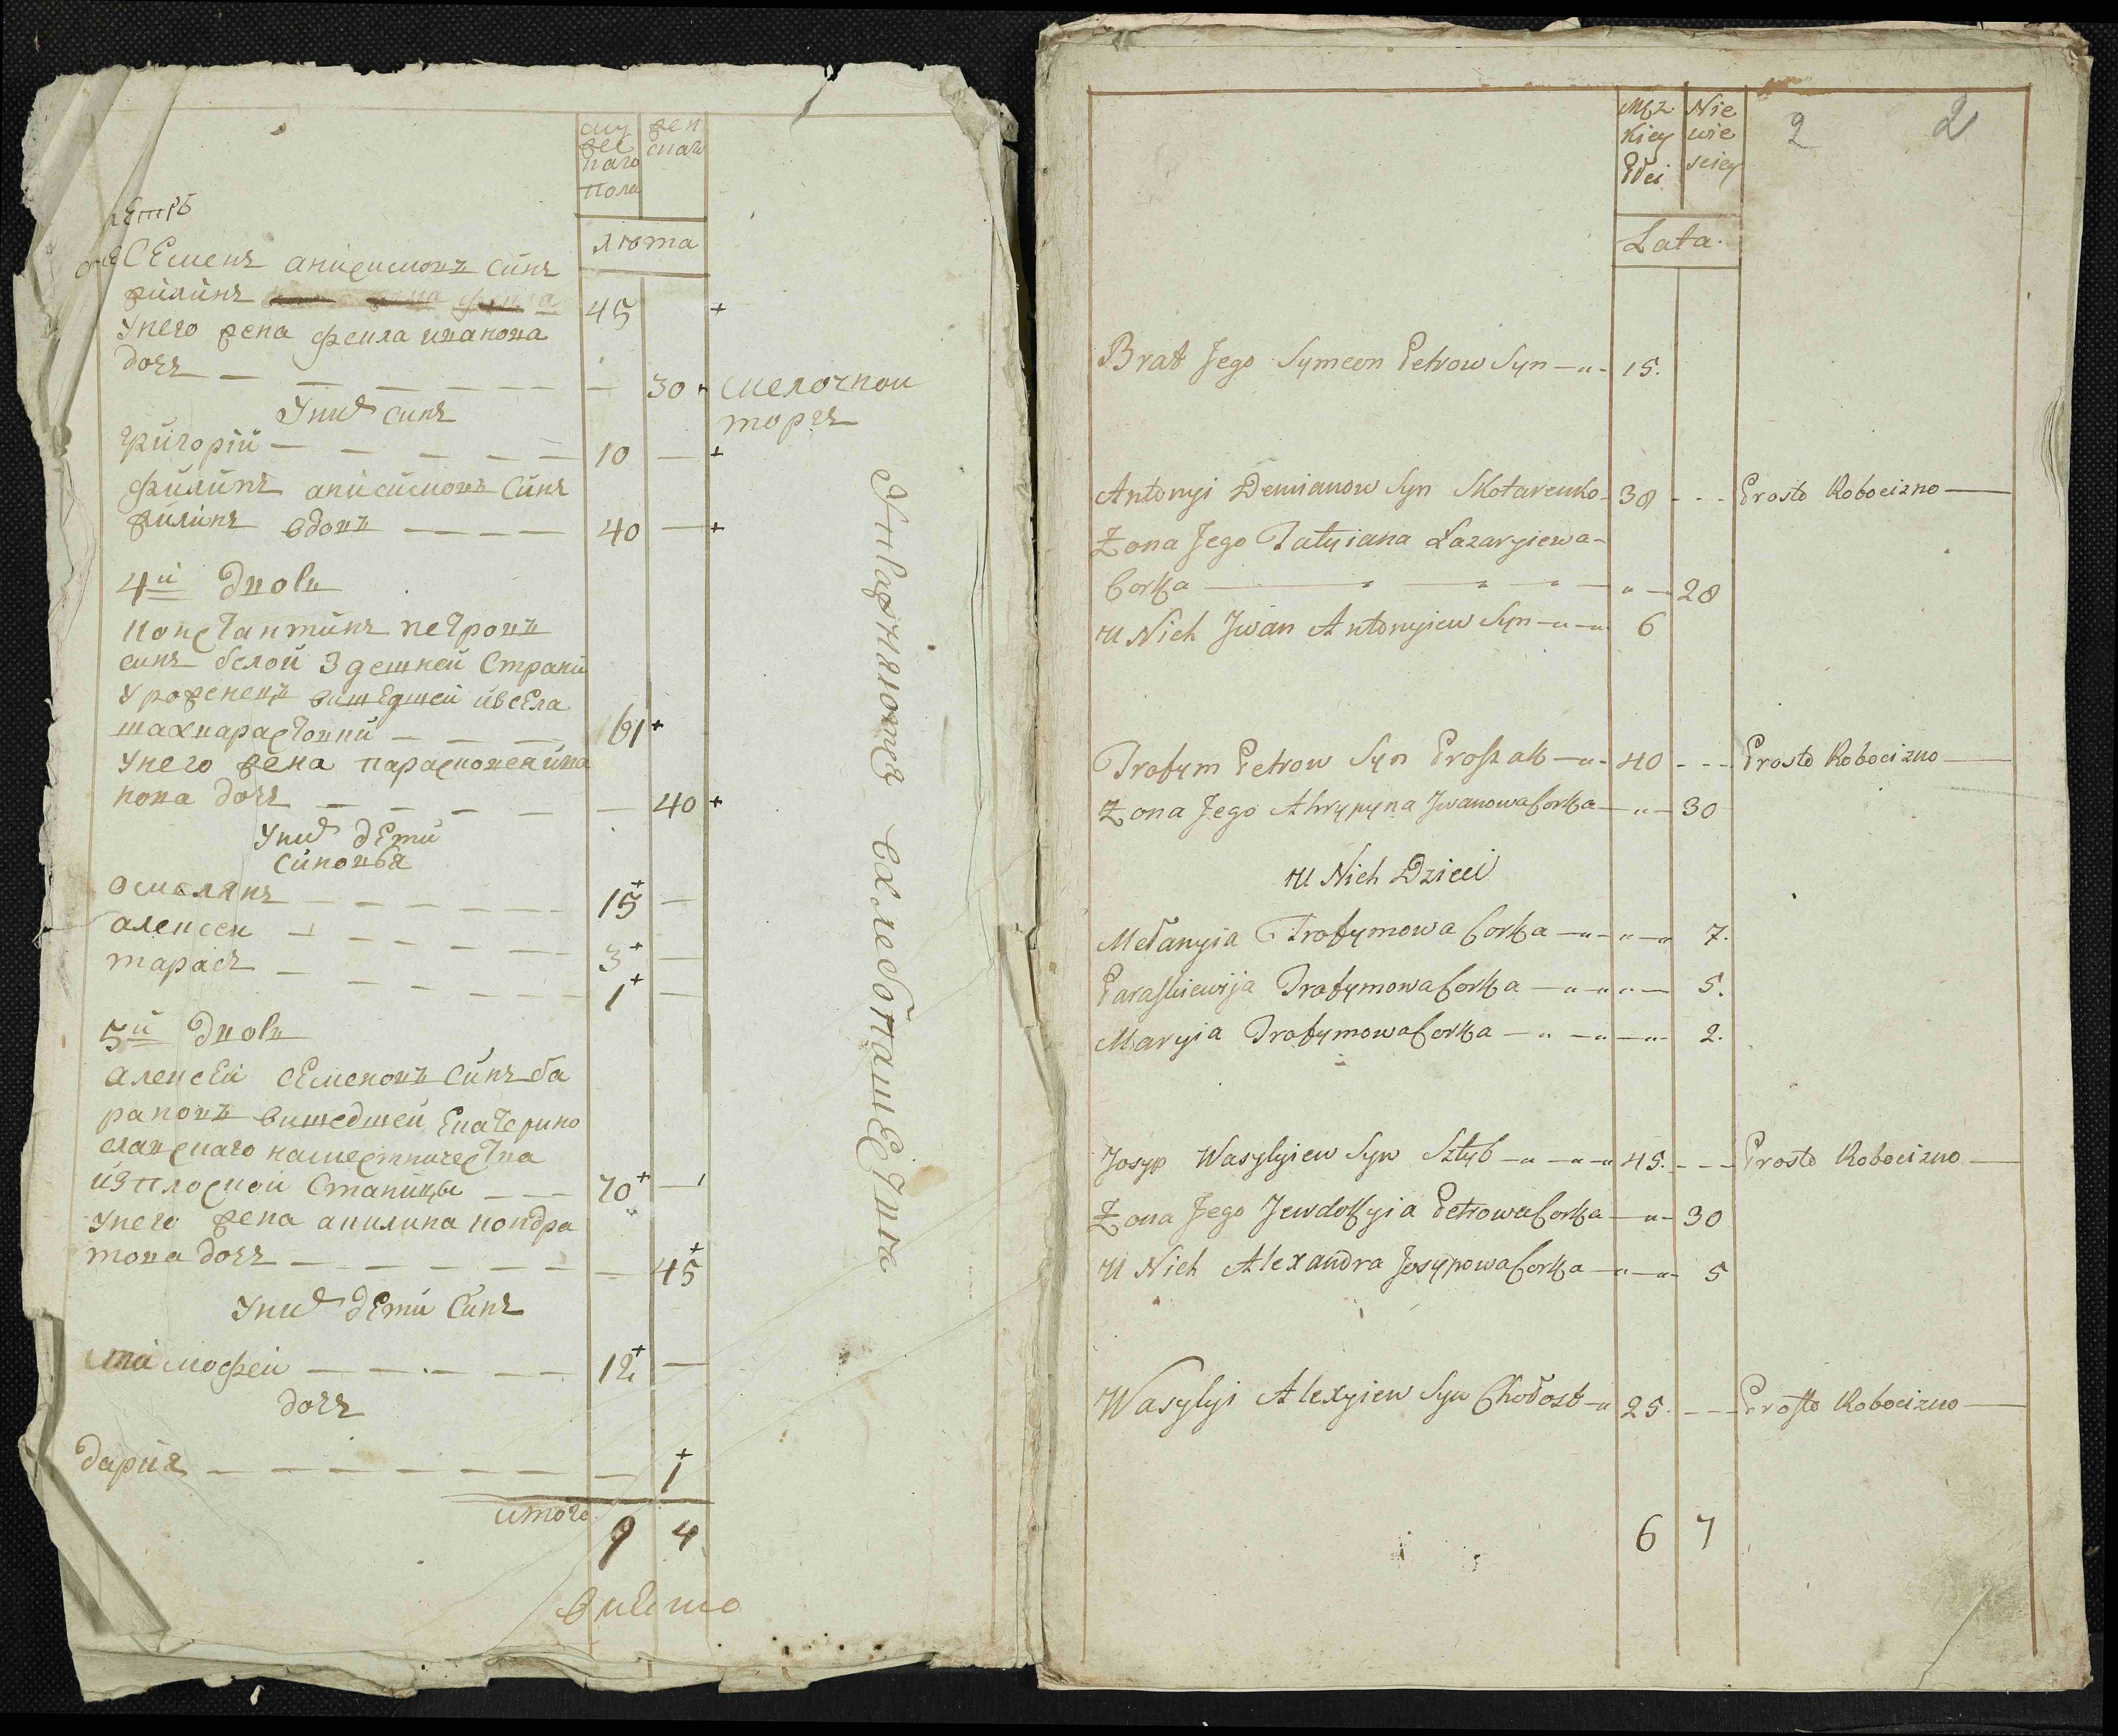 муж
еск
наго
пола
жен
скаго
лѣта
Семенъ анисимовъ синъ
филипъ 45 +
Унего жена фекла иванова
дочъ — — — — — — 30 +
Унихъ синъ
григорій — — — — — 10 — +
мелочнои
торгъ
филипъ анисимовъ синъ
филипъ вдовъ — — — — 40 — +
4й дворъ
константинъ петровъ
синъ белой Здешней Страни
Уроженецъ вишедшей исела
61 +
Унего жена парасковея ива
нова дочъ — — — — — — 40 +
Унихъ дѣти
синовья
— — — — — 15 + —
алексеи — — — — — 3 + —
тарасъ — — — — — 1 + —
5й дворъ
алексеи семеновъ синъ ба
рановъ вишедшей Екатерино
славскаго наместничества
изплоской Станици — — 70 + —
Унего жена акилина кондра
това дочъ — — — — — — 45 +
Унихъ дѣти синъ
тимофеи — — — — — 12 + —
дочъ
дария — — — — — — — 1 +
итого 9 4
Упражняютъ вхлебопашества
2 2
Męz
kiey
Płci
Nie
wie
sciey
Lata.
Brat Jego Symeon Petrow Syn — 15.
Antonyi Demianow Syn Skotarenko — 38 - - - Prosto Robocizno —
Żona Jego Tatyiana Łazaryiewa
Corka — — — — 28
U Nich Jwan Antonyiew Syn — 6
Trofym Petrow Syn Proszak — 40 - - - Prosto Robocizno —
Żona Jego Ahrypyna Jwanowa Corka — 30
U Nich Dzieci
Mełanyia Trofymowa Corka — 7.
Paraskiewija Trofymowa Corka — 5.
Maryia Trofymowa Corka — 2.
Josyp Wasylyiew Syn Sztyb — 45. - - - Prosto Robocizno —
Żona Jego Jewdokyia Petrowa Corka — 30
U Nich Alexandra Josypowa Corka — 5
Wasylyi Alexyiew Syn Chołost — 25. - - - Prosto Robocizno —
6 7